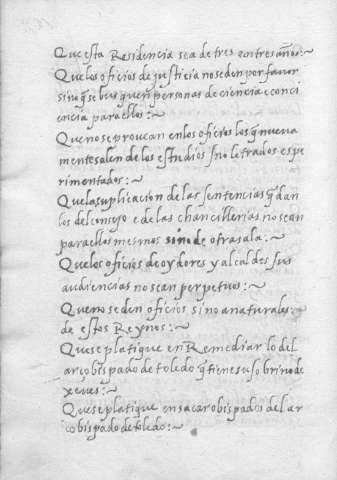 Que esta Residencia sea de tres en tres años:~
Que los oficios de justicia no se den por favor
sino q̃ se busquen personas de ciencia e conci
encia para ellos:~
Que no se provean en los oficios los q̃ nueva
mente salen de los estudios sino letrados espe
rimentados:~
Que la suplicacion de las sentencias q̃ dan
los del consejo e de las chancillerias no sean
para ellos mesmos sino de otra sala:~
Que los oficios de oydores y alcaldes sus
audiencias no sean perpetuos:~
Que no se den oficios sino a naturales
de estos Reynos:~
Que se platique en Remediar lo del
arçobispado de toledo q̃ tiene su sobrino de
xeves:~
Que se platique en sacar obispados del ar
cobispado de toledo:~